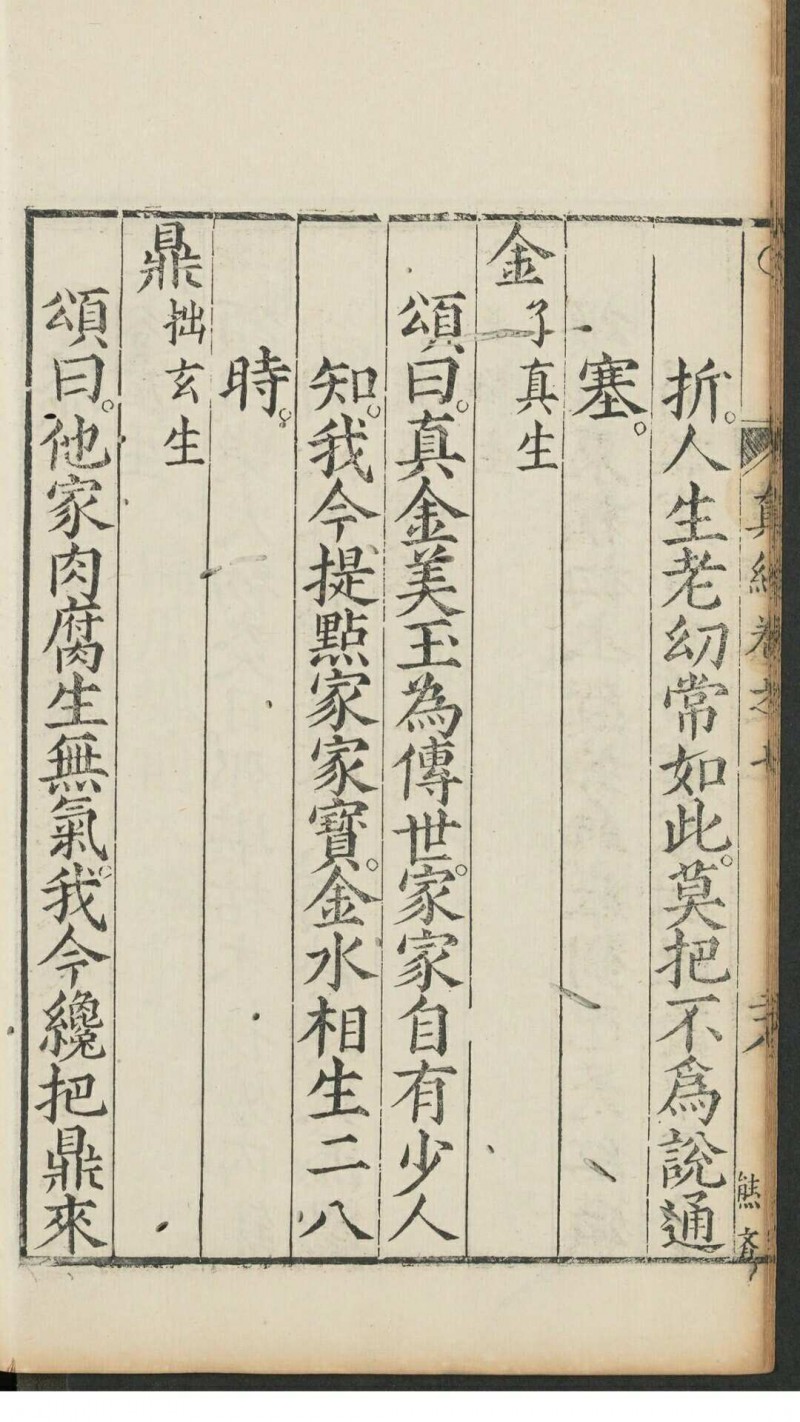 真經卷之七
熊
折。人生老幼常如此。莫把不為說通
塞。
金 子真生
頌曰。真金美玉為傳世。家家自有少人
知。我今提點家家寶。金水相生二八
時。
鼎 拙玄生
頌曰。他家肉腐生無氣。我今纔把鼎來